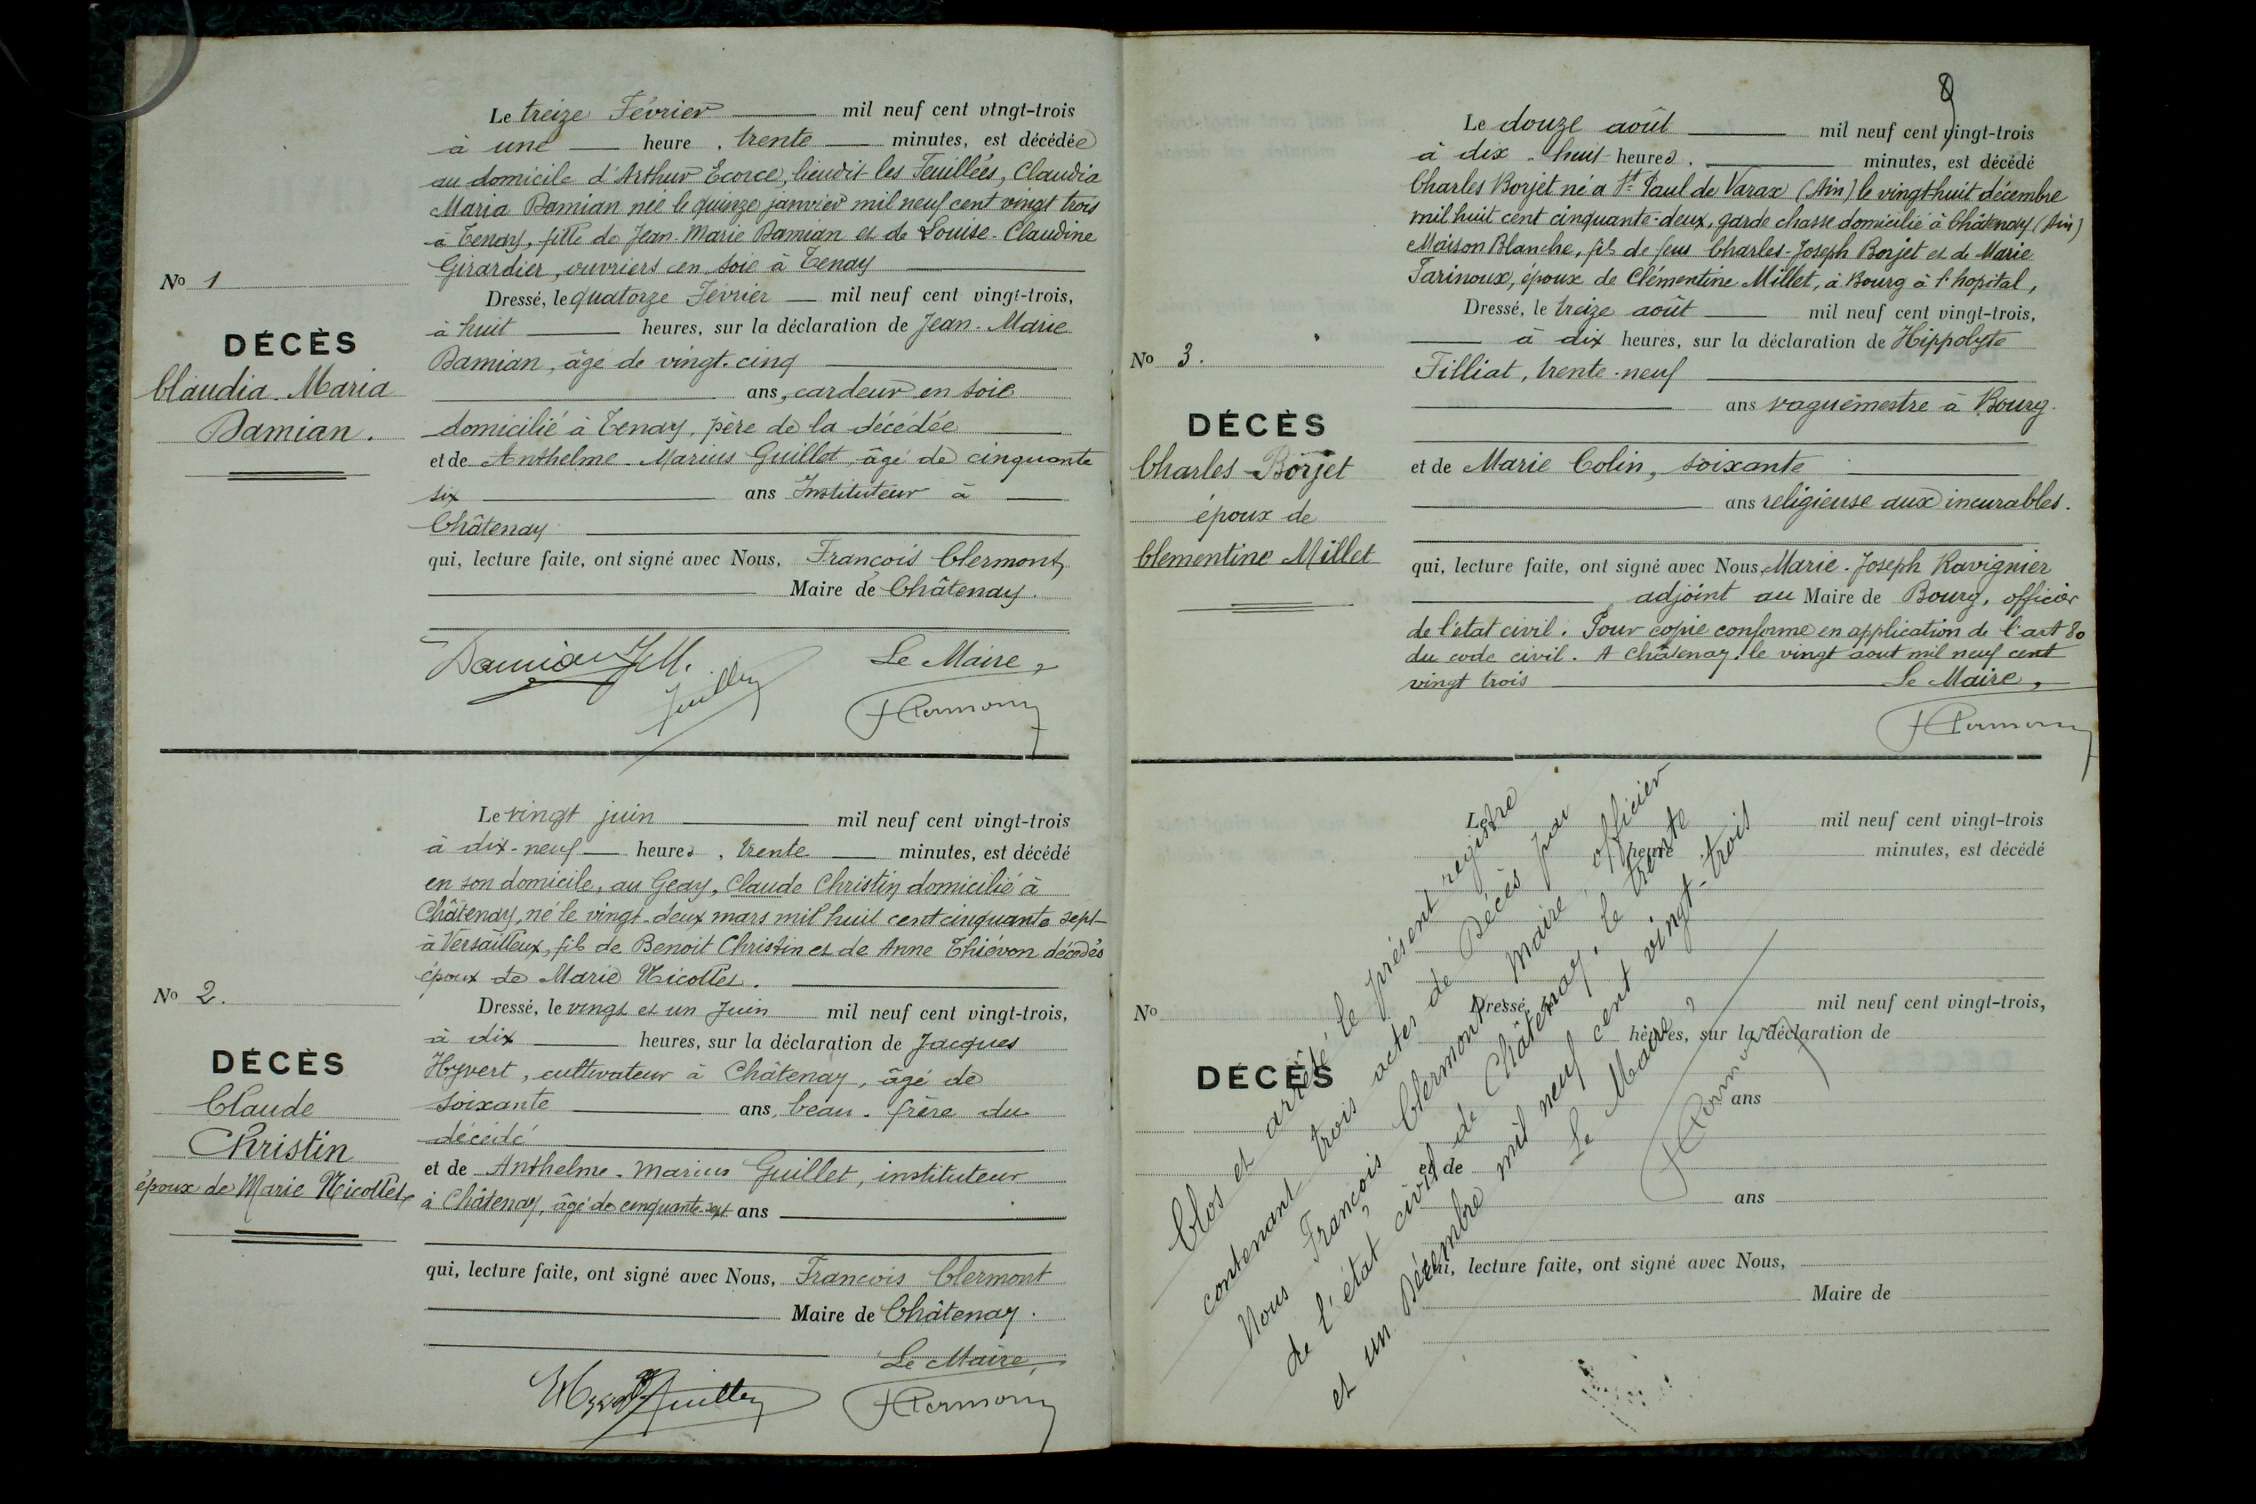 Le treize Février mil neuf cent vingt-trois
à une heure, trente minutes, est décédée
au domicile d'Arthur Ecorce, lieudit les Feuillées, Claudia
Maria Damian née le quinze janvier mil neuf cent vingt trois
à Tenay, fille de Jean-Marie Damian et de Louise-Claudine
Girardier, ouvriers en soie à Tenay
No 1
DÉCÈS
Claudia-Maria
Damian.
Dressé, le quatorze Février mil neuf cent vingt-trois,
à huit heures, sur la déclaration de Jean-Marie
Damian, âgé de vingt-cinq
ans, cardeur en soie
domicilié à Tenay, père de la décédée
et de Anthelme-Marius Guillet, âgé de cinquante
six ans Instituteur à
Châtenay
qui, lecture faite, ont signé avec Nous, François Clermont,
Maire de Châtenay.
Damian JM.
Guillet
Le Maire,
FClermont
Le vingt juin mil neuf cent vingt-trois
à dix-neuf heures, trente minutes, est décédé
en son domicile, au Geay, Claude Christin domicilié à
Châtenay, né le vingt-deux mars mil huit cent cinquante sept
à Versailleux, fils de Benoit Christin et de Anne Thiévon décédés
époux de Marie Nicollet.
No 2.
DÉCÈS
Claude
Christin
époux de Marie Nicollet
Dressé, le vingt et un Juin mil neuf cent vingt-trois,
à dix heures, sur la déclaration de Jacques
Hyvert, cultivateur à Châtenay, âgé de
soixante ans, beau-frère du
décédé
et de Anthelme-Marius Guillet, instituteur
à Châtenay, âgé de cinquante-sept ans
qui, lecture faite, ont signé avec Nous, François Clermont
Maire de Châtenay.
Le Maire,
Hyvert
Guillet
FClermont
8
Le douze août mil neuf cent vingt-trois
à dix-huit heures, minutes, est décédé
Charles Borjet né à St Paul de Varax (Ain) le vingt-huit décembre
mil huit cent cinquante-deux, garde chasse domicilié à Châtenay (Ain)
Maison Blanche, fils de feus Charles-Joseph Borjet et de Marie
Tarinoux, époux de Clémentine Millet, à Bourg à l'hopital,
No 3.
DÉCÈS
Charles Borjet
époux de
Clementine Millet
Dressé, le treize août mil neuf cent vingt-trois,
à dix heures, sur la déclaration de Hippolyte
Filliat, trente-neuf
ans vaguemestre à Bourg.
et de Marie Colin, soixante
ans religieuse aux incurables.
qui, lecture faite, ont signé avec Nous, Marie-Joseph Ravignier
adjoint au Maire de Bourg, officier
de l'état civil. Pour copie conforme en application de l'art 80
du code civil. A Châtenay, le vingt aout mil neuf cent
vingt trois Le Maire,
FClermont
Le mil neuf cent vingt-trois
heure minutes, est décédé
No
DÉCÈS
Dressé, le mil neuf cent vingt-trois,
heures, sur la déclaration de
ans
et de
ans
qui, lecture faite, ont signé avec Nous,
Maire de
Clos et arrêté le présent registre
contenant trois actes de Décès par
Nous François Clermont, Maire, officier
de l'état civil de Châtenay, le trente
et un Décembre mil neuf cent vingt-trois
Le Maire,
FClermont